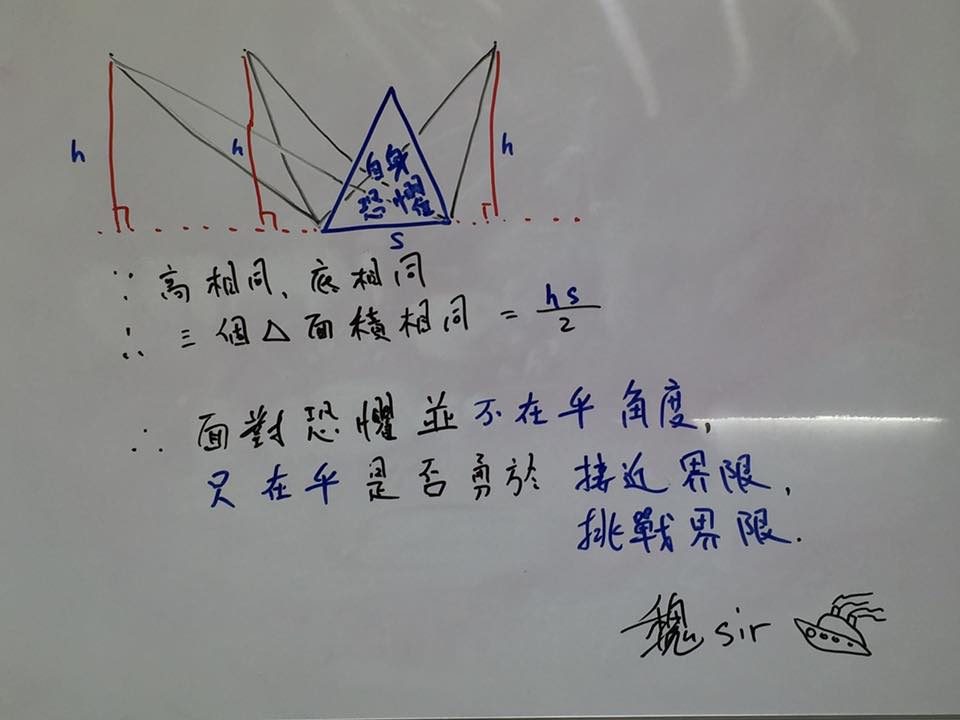 h
h
h
自身
恐懼
s
∵ 高相同、底相同
∴ 三個△面積相同 = hs/2
∴ 面對恐懼並不在乎角度,
只在乎是否勇於 接近界限,
挑戰界限.
魏 sir